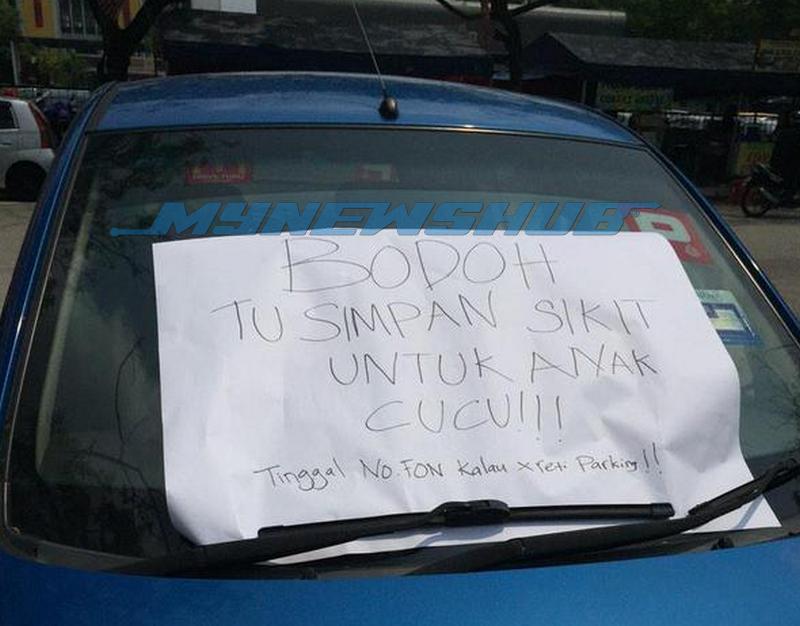 MYNEWSHUB
P
BODOH
TU SIMPAN SIKIT
UNTUK ANAK
CUCU!!!
Tinggal No.FON Kalau x reti Parking!!